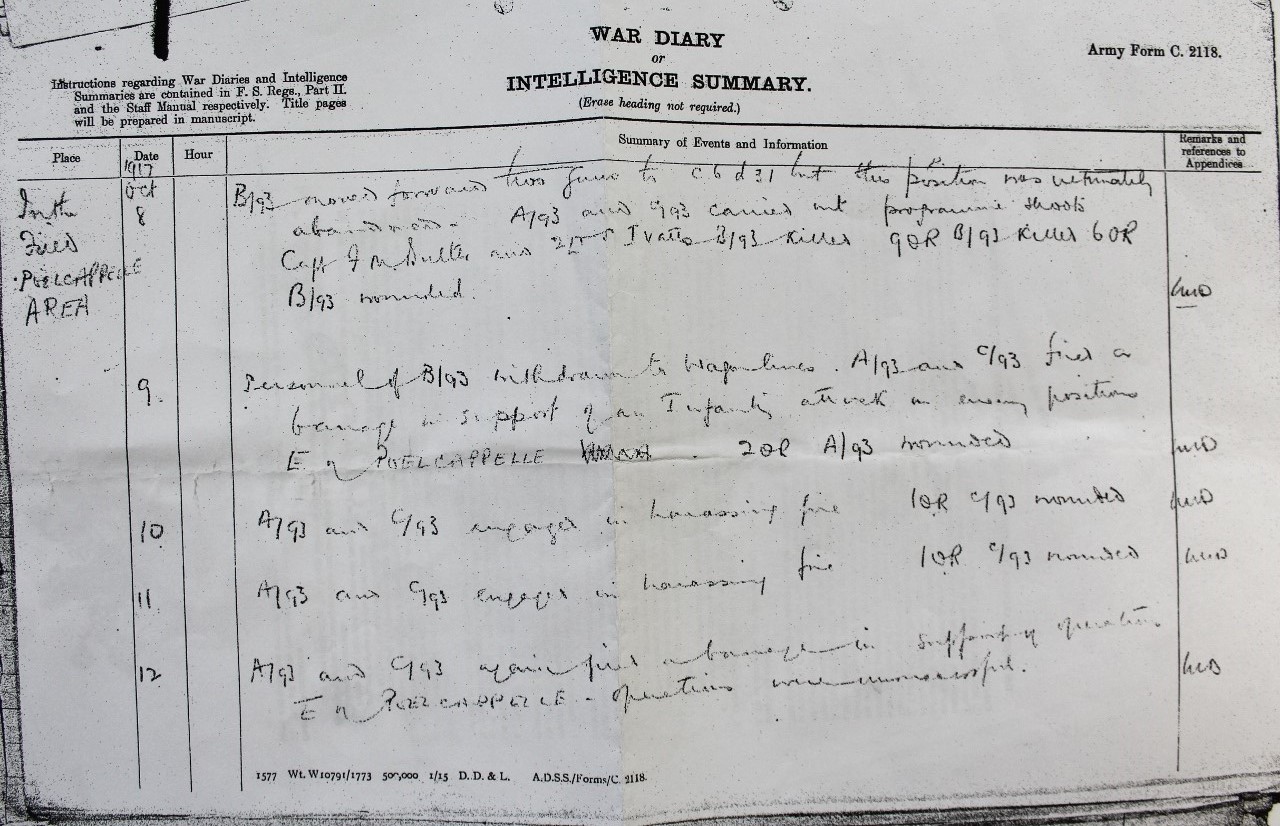 WAR DIARY
or
INTELLIGENCE SUMMARY.
(Erase heading not required.)
Army Form C. 2118.
Instructions regarding War Diaries and Intelligence
Summaries are contained in F. S. Regs., Part II.
and the Staff Manual respectively. Title pages
will be prepared in manuscript.
Place
Date
Hour
Summary of Events and Information
Remarks and
references to
Appendices
1917
In the
Field
POELCAPPELLE
AREA
Oct
8
B/93 moved forward two guns to C 6 d 31 but this position was ultimately
abandoned. A/93 and C/93 carried out programme shoots
Capt and B/93 killed 9 OR B/93 killed 6 OR
B/93 wounded.
9
Personnel of B/93 withdrawn to Wagon lines. A/93 and C/93 fired a
barrage in support of an Infantry attack on enemy positions
E of POELCAPPELLE 2 OR A/93 wounded
10
A/93 and C/93 engaged in harassing fire 1 OR C/93 wounded
11
A/93 and C/93 engaged in harassing fire 1 OR C/93 wounded
12
A/93 and C/93 again fired a barrage in support of operation
E of POELCAPPELLE - operations were unsuccessful.
1577 Wt. W10791/1773 500,000 1/15 D. D. & L. A.D.S.S./Forms/C. 2118.